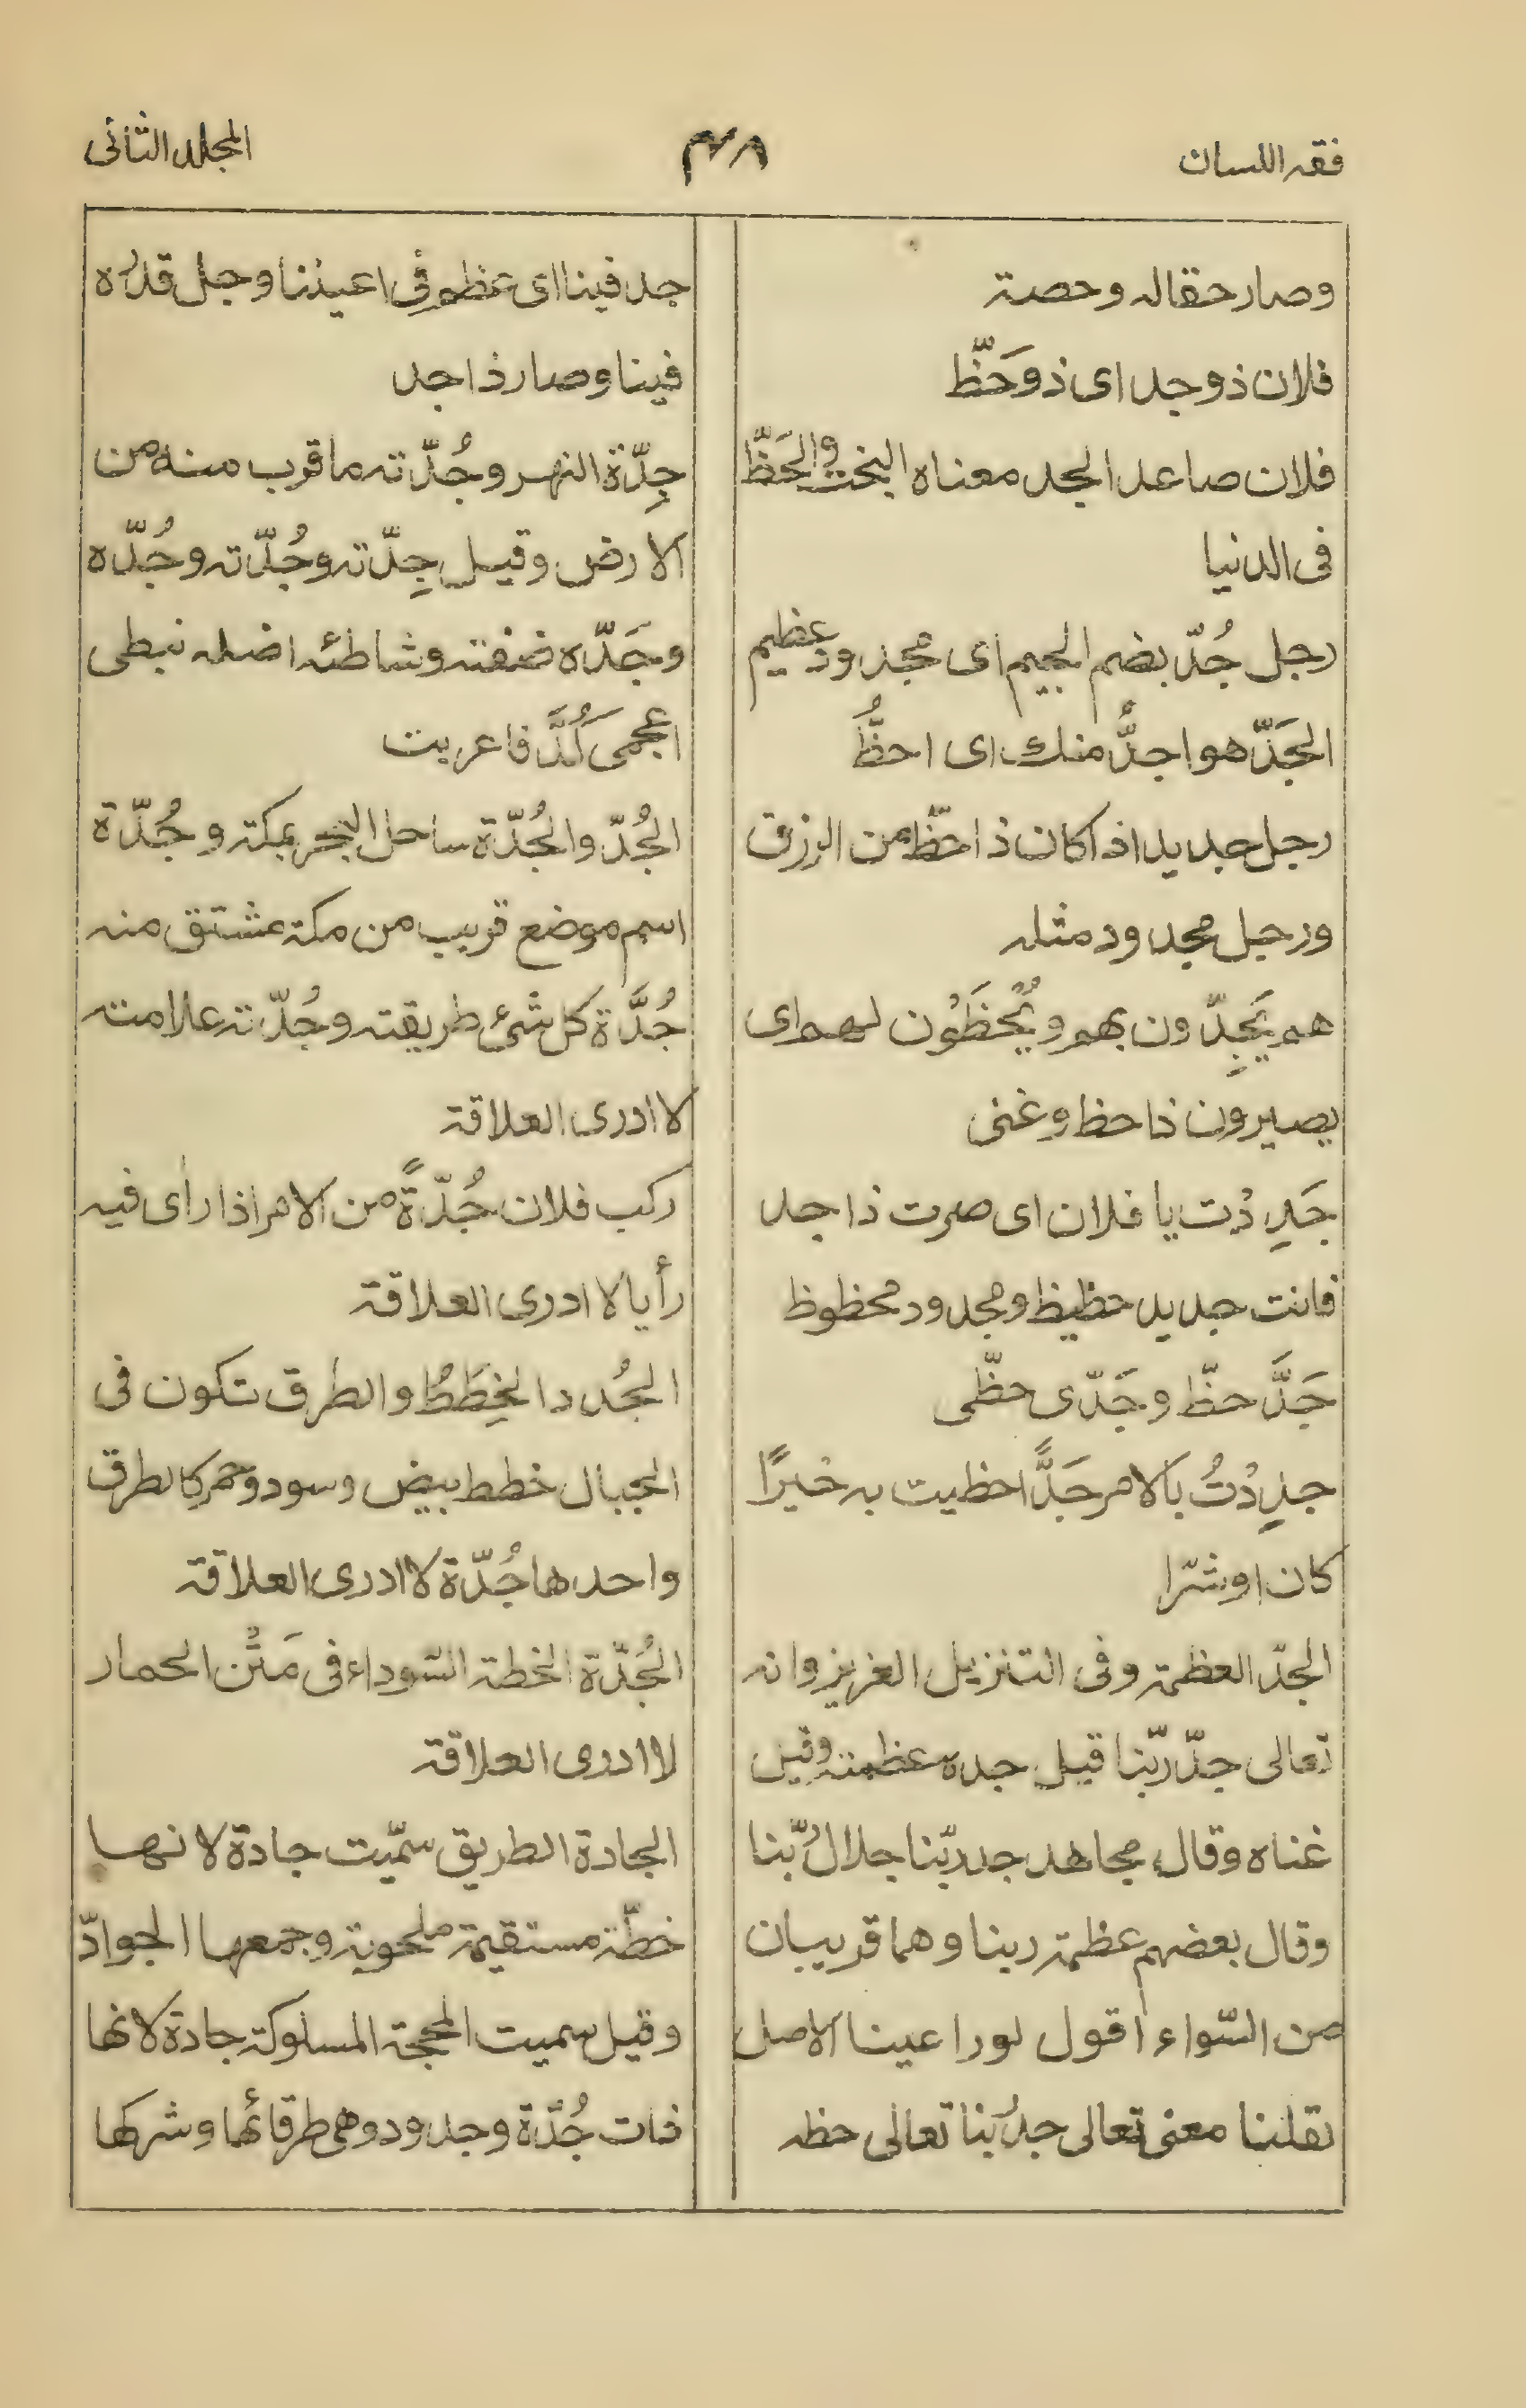 فقه اللسان
٣٧٨
المجلد الثانى
وصار حقا له وحصة
فلان ذو جد اى ذو حَظّ
فلان صاعد الجد معناه البخت والحَظّ
فى الدنيا
رجل جُدّ بضم الجيم اى مجدود عظيم
الجَدّ هو اجدُّ منك اى احظُّ
رجل جديد اذا كان ذا حظّ من الرزق
ورجل مجدود مثله
هم يَجِدّون بهم ويُحْظَوْن لهم اى
يصيرون ذا حظ وغنى
جَدِدْت يا فلان اى صرت ذا جد
فانت جديد حظيظ ومجدود محظوظ
جَدَّ حظّ وجَدّى حظّى
جدِدْتُ بالامر جَدًّا حظيت به خيرًا
كان او شرّا
الجدّ العظمة وفى التنزيل العزيز وانه
تعالى جدّ ربّنا قيل جده عظمته وقيل
غناه وقال مجاهد جد ربّنا جلال ربّنا
وقال بعضهم عظمة ربنا وهما قريبان
من السّواء اقول لو راعينا الاصل
نقلنا معنى تعالى جد ربنا تعالى حظه
جد فينا اى عظم فى اعيننا وجل قدره
فينا وصار ذا جد
جِدّة النهر وجُدّته ما قرب منه من
الارض وقيل جِدّته وجُدّته وجُدّه
وجَدّه ضفته وشاطئه اصله نبطى
اعجمى كُدَّ فاعربت
الجُدّ والجُدّة ساحل البحر بمكة وجُدّة
اسم موضع قريب من مكة مشتق منه
جُدَّة كل شئ طريقته وجُدّته علامته
لا ادرى العلاقة
ركب فلان جُدّةً من الامر اذا راى فيه
رأيا لا ادرى العلاقة
الجُدد الخِطَطُ والطرق تكون فى
الجبال خطط بيض وسود وحمر كالطرق
واحدها جُدّة لا ادرى العلاقة
الجُدّة الخطة السّوداء فى مَتْن الحمار
لا ادرى العلاقة
الجادة الطريق سمّيت جادة لانها
خطّة مستقيمة ملحوبة وجمعها الجوادّ
وقيل سميت المحجة المسلوكة جادة لانها
ذات جُدّة وجدود وهى طرقاتها وشركها